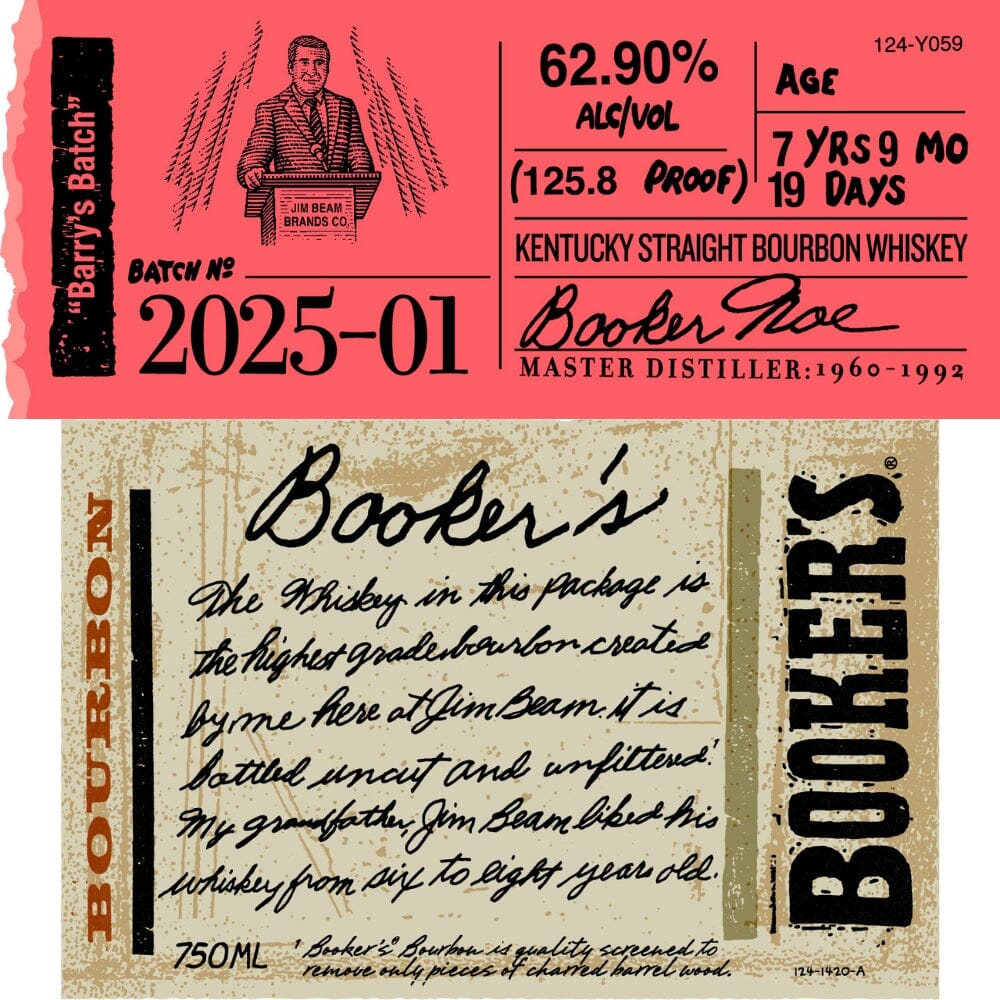 "Barry's Batch"
JIM BEAM
BRANDS CO.
BATCH Nº
2025-01
62.90%
ALC/VOL
(125.8 PROOF)
124-Y059
AGE
7 YRS 9 MO
19 DAYS
KENTUCKY STRAIGHT BOURBON WHISKEY
Booker Noe
MASTER DISTILLER: 1960-1992
BOURBON
Booker's
The Whiskey in this package is
the highest grade bourbon created
by me here at Jim Beam. it is
bottled uncut and unfiltered¹.
My grandfather, Jim Beam liked his
whiskey from six to eight years old.
750ML
¹ Booker's® Bourbon is quality screened to
remove only pieces of charred barrel wood.
BOOKER'S®
124-1420-A